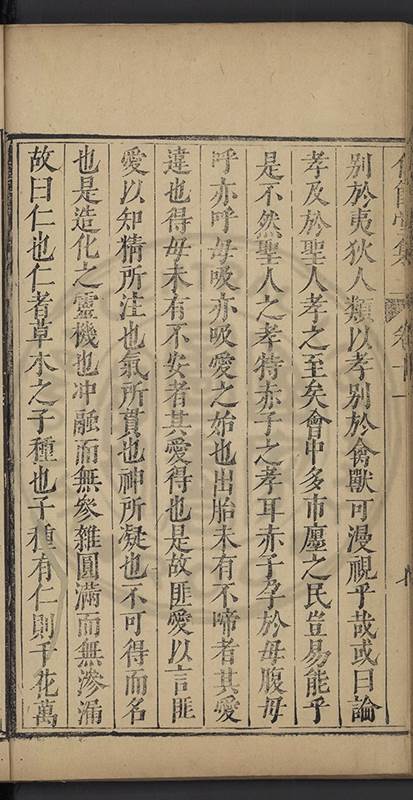 別於夷狄人類以孝別於禽獸可漫視乎哉或曰論
孝及於聖人孝之至矣會中多市廛之民豈易能乎
是不然聖人之孝特赤子之孝耳赤子孕於母腹母
呼亦呼母吸亦吸愛之始也出胎未有不啼者其愛
違也得母未有不安者其愛得也是故匪愛以言匪
愛以知精所注也氣所貫也神所凝也不可得而名
也是造化之靈機也冲融而無參雜圓滿而無滲漏
故曰仁也仁者草木之子種也子種有仁則千花萬